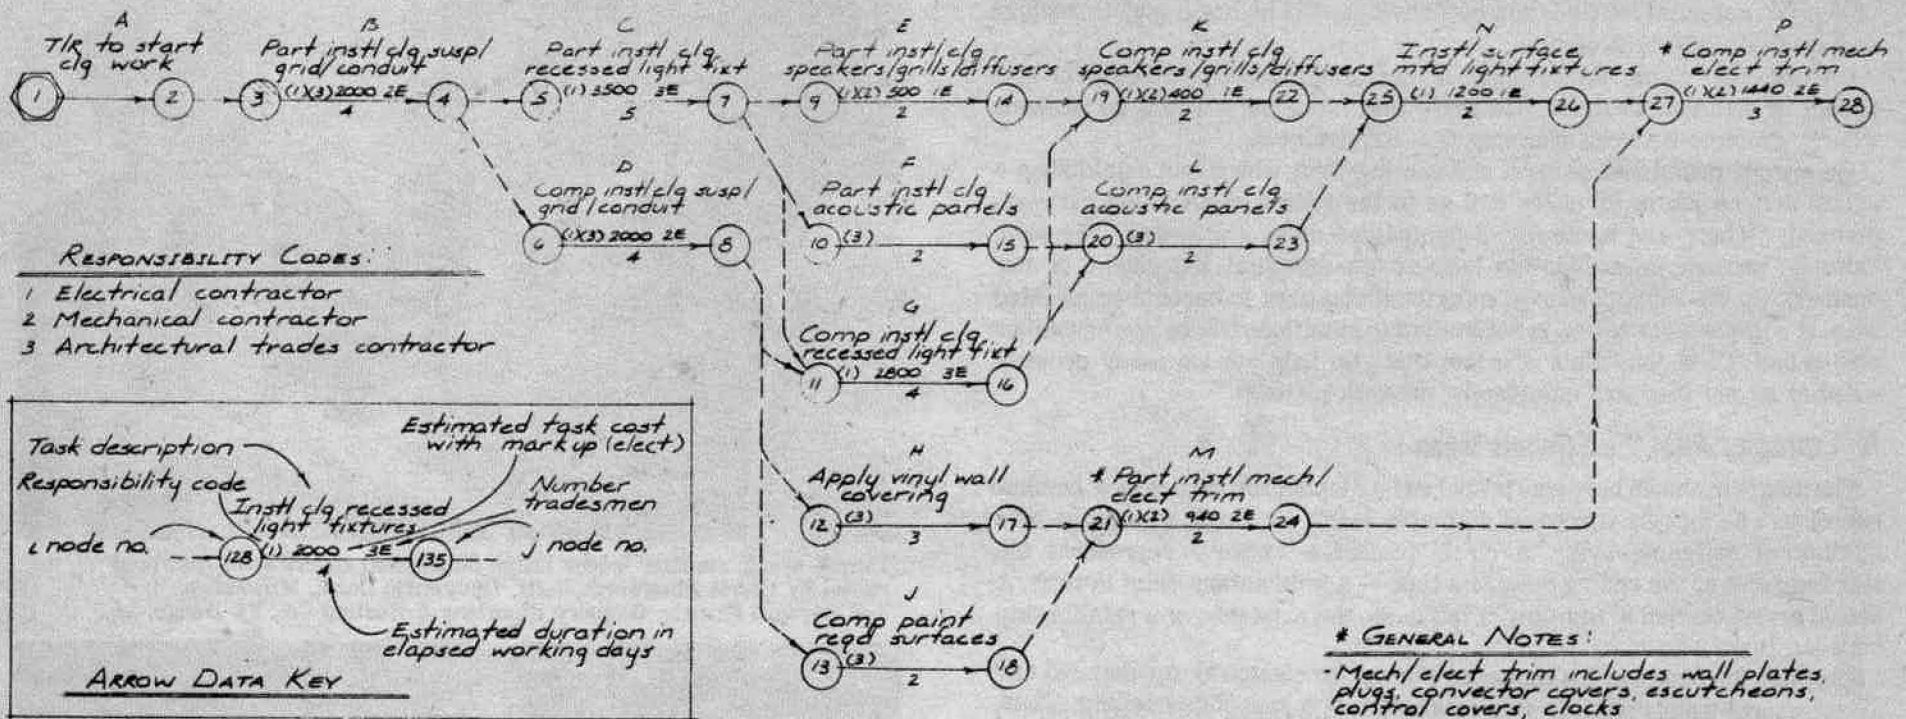 A
T/R to start
clg work
1
2
B
Part instl clg susp/
grid/conduit
3
(1)(3) 2000 2E
4
4
C
Part instl clg
recessed light fixt
5
(1) 3500 3E
7
5
E
Part instl clg
speakers/grills/diffusers
9
(1)(2) 500 1E
14
2
K
Comp instl clg
speakers/grills/diffusers
19
(1)(2) 400 1E
22
2
N
Instl surface
mtd light fixtures
25
(1) 1200 1E
26
2
P
* Comp instl mech
elect trim
27
(1)(2) 1440 2E
28
3
D
Comp instl clg susp/
grid/conduit
6
(1)(3) 2000 2E
8
4
F
Part instl clg
acoustic panels
10
(3)
15
2
L
Comp instl clg
acoustic panels
20
(3)
23
2
G
Comp instl clg
recessed light fixt
11
(1) 2800 3E
16
4
H
Apply vinyl wall
covering
12
(3)
17
3
M
* Part instl mech/
elect trim
21
(1)(2) 940 2E
24
2
J
Comp paint
reqd surfaces
13
(3)
18
2
RESPONSIBILITY CODES:
1 Electrical contractor
2 Mechanical contractor
3 Architectural trades contractor
Task description
Estimated task cost
with mark up (elect)
Responsibility code
Instl clg recessed
light fixtures
Number
tradesmen
i node no.
128
(1) 2000 3E
135
j node no.
4
Estimated duration in
elapsed working days
ARROW DATA KEY
* GENERAL NOTES:
- Mech/elect trim includes wall plates,
plugs, convector covers, escutcheons,
control covers, clocks